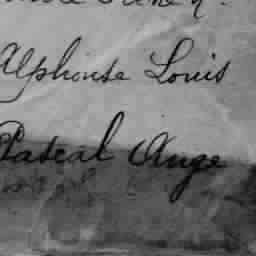 Alphonse Louis
Pascal Ange